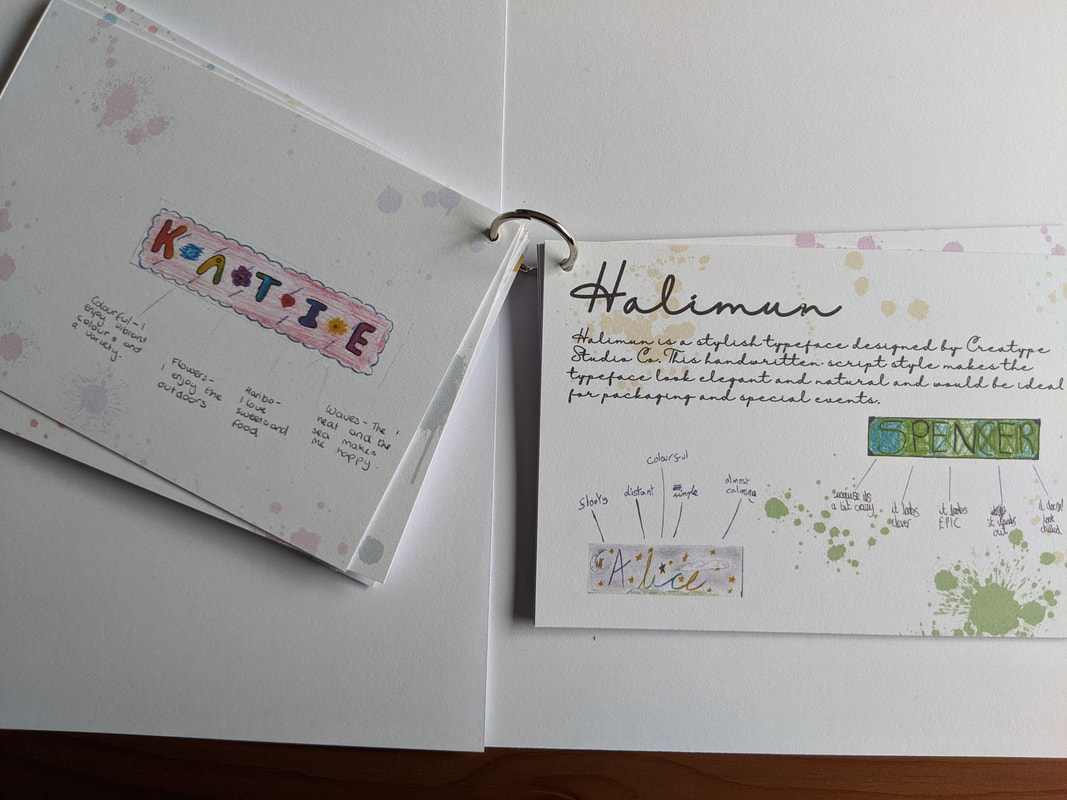 KATIE
Colourful - I
enjoy vibrant
colours and
a variety.
Flowers -
I enjoy the
outdoors
Haribo -
I love
sweets and
food
Waves - The
heat and the
sea makes
me happy.
Halimun
Halimun is a stylish typeface designed by Creatype
Studio Co. This handwritten script style makes the
typeface look elegant and natural and would be ideal
for packaging and special events.
SPENCER
because its
a bit crazy
it looks
clever
it looks
EPIC
it stands
out
it doesn't
look
colourful
distant
simple
almost
calming
Alice